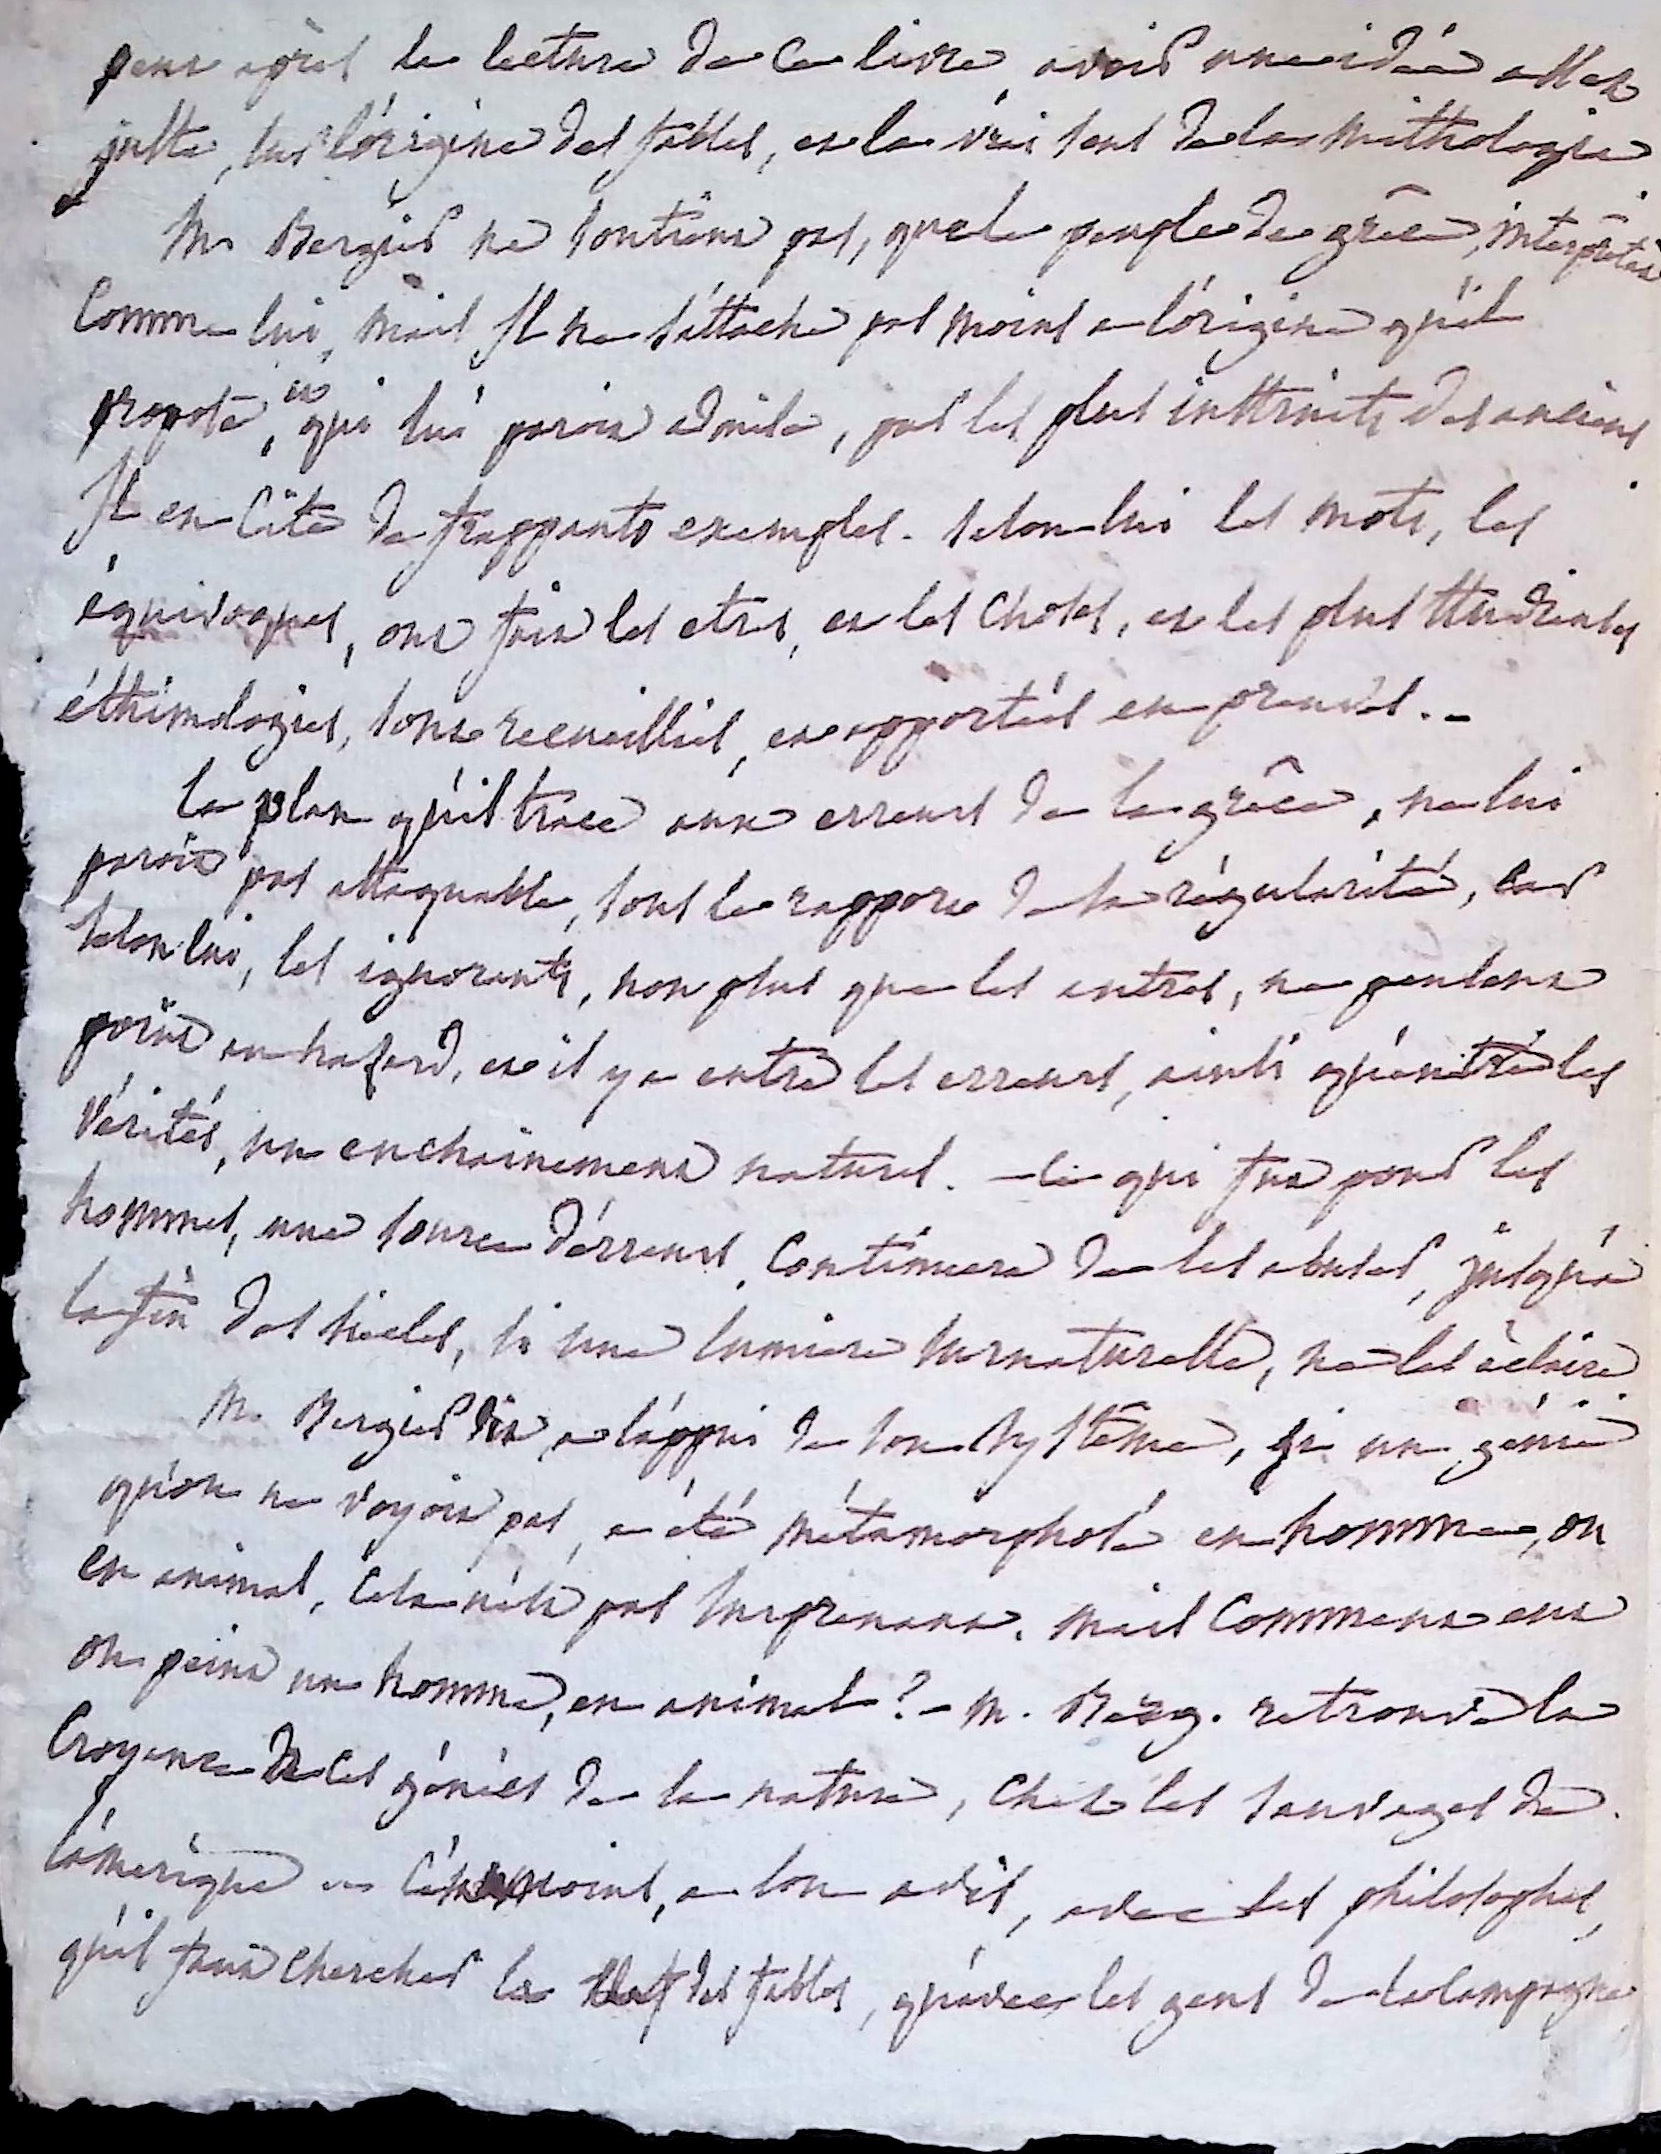 peut après la lecture de ce livre, avoir une idée assez
juste, sur l'origine des fables, et le vrai sens de la mithologie
Mr Bergier ne soutient pas, que le peuple de grêce, interprétat
comme lui, mais Il ne s'attache pas moins a l'origine qu'il
propose, et qui lui paroit admise, par les plus instruits des anciens
Il en cite de frappants exemples. selon lui les mots, les
équivoques, ont fait les etres, et les choses, et les plus studieuses
éthimologies, sont recueillies, et apportées en preuves. -
le plan qu'il trace aux erreurs de la grêce, ne lui
paroit pas attaquable, sous le rapport de sa régularité, car
selon lui, les ignorants, non plus que les autres, ne pensent
point au hasard, et il y a entre les erreurs, ainsi qu'entre les
vérités, un enchainement naturel. - ce qui fut pour les
hommes, une source d'erreurs, continuera de les abuser, jusqu'a
la fin des siecles, si une lumiere surnaturelle, ne les éclaire
Mr Bergier dit, a l'appui de son systême, si un génie
qu'on ne voyoit pas, a été métamorphosé en homme, ou
en animal, cela n'est pas surprenant. mais comment eut
on peint un homme, en animal ? - M. Berg. retrouve la
croyance de ces génies de la nature, chez les sauvages de
l'amérique et c'est moins, a son avis, avec les philosophes,
qu'il faut chercher la clef des fables, qu'avec les gens de la campagne